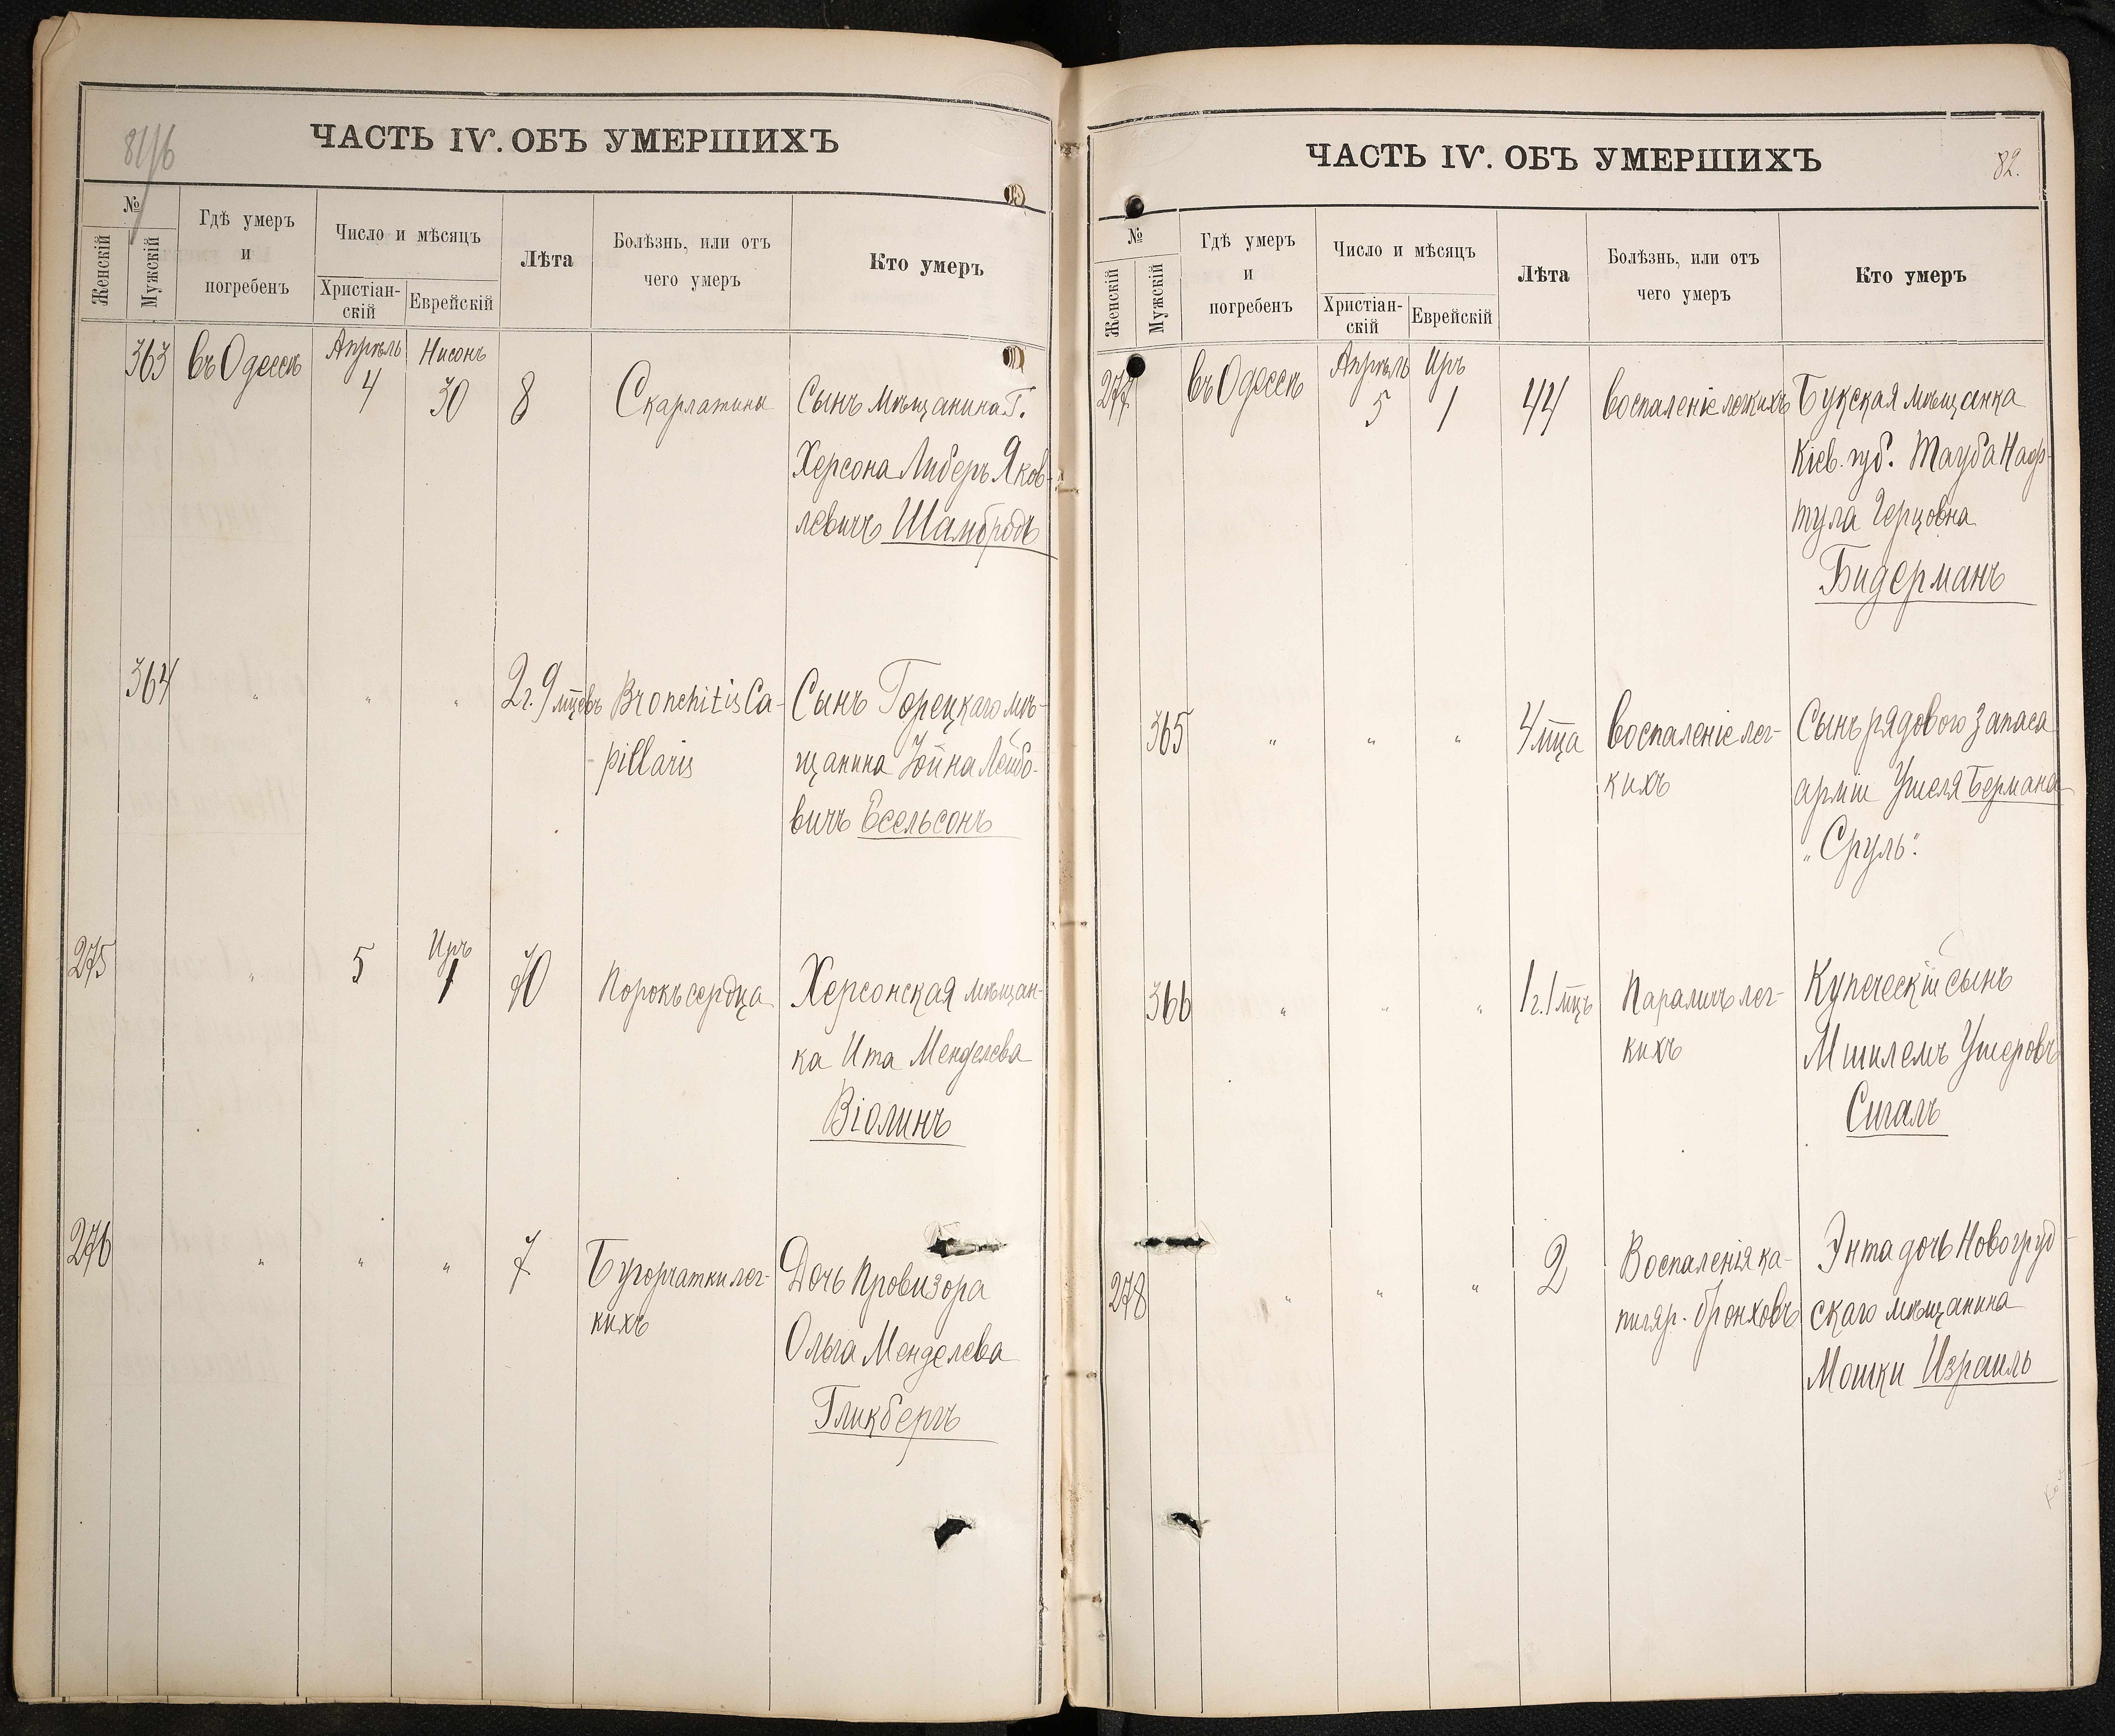 81/16
ЧАСТЬ IV. ОБЪ УМЕРШИХЪ
№
Женскій
Мужскій
Гдѣ умеръ
и
погребенъ
Число и мѣсяцъ
Христіан-
скій
Еврейскій
Лѣта
Болѣзнь, или отъ
чего умеръ
Кто умеръ
363 въ Одессѣ Апрѣль Нисонъ
4 30 8 Скарлатина Сынъ мѣщанина Г.
Херсона Либеръ Яков-
левичъ Шамбродъ
364 " " " 2 г. 9 мцевъ Bronchitis Ca- Сынъ Горецкаго мѣ-
pillaris щанина Іойна Лейбо-
вичъ Есельсонъ
275 " 5 Иръ 1 70 Порокъ сердца Херсонская мѣщан-
ка Ита Менделева
Віолинъ
276 " " " 7 Бугорчатки лег- Дочь Провизора
кихъ Ольга Менделева
Гликбергъ
ЧАСТЬ IV. ОБЪ УМЕРШИХЪ
82.
№
Женскій
Мужскій
Гдѣ умеръ
и
погребенъ
Число и мѣсяцъ
Христіан-
скій
Еврейскій
Лѣта
Болѣзнь, или отъ
чего умеръ
Кто умеръ
277 въ Одессѣ Апрѣль Иръ
5 1 44 воспаленіе легкихъ Букская мѣщанка
Кіев. губ. Тауба Наф-
тула Герцовна
Бидерманъ
365 " " " 4 мца воспаленіе лег- Сынъ рядового запаса
кихъ арміи Ушеля Бермана
"Сруль".
366 " " " 1 г. 1 мцъ Параличъ лег- Купеческій сынъ
кихъ Мшилемъ Ушеровъ
Сигалъ
278 " " " 2 Воспаленія ка- Энта дочь Новогруд-
пиляр. бронховъ скаго мѣщанина
Мошки Израиль